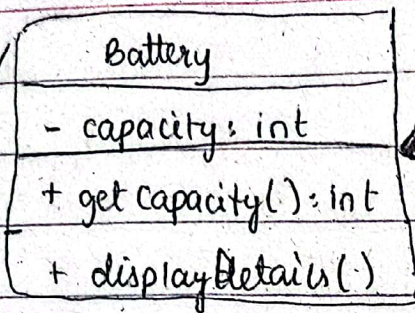 Battery
- capacity: int
+ getCapacity(): int
+ displayDetails()